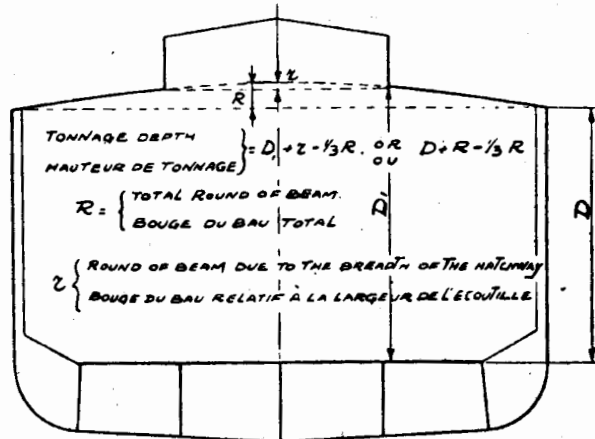 r
R
TONNAGE DEPTH
HAUTEUR DE TONNAGE } = D₁ + r - 1/3 R. OR OU D + R - 1/3 R
R = { TOTAL ROUND OF BEAM.
BOUGE DU BAU TOTAL
D₁
D
r { ROUND OF BEAM DUE TO THE BREADTH OF THE HATCHWAY
BOUGE DU BAU RELATIF À LA LARGEUR DE L'ÉCOUTILLE